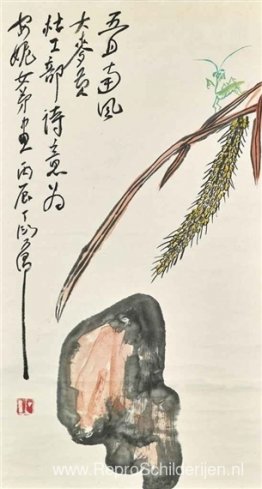 五月南風
大麥黃
杜工部詩意為
安妮女弟畫丙辰丁衍庸
www.ReproSchilderijen.nl